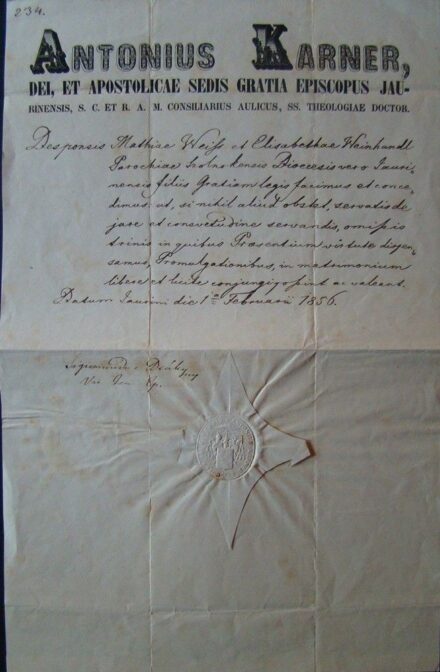 234.
ANTONIUS KARNER,
DEI, ET APOSTOLICAE SEDIS GRATIA EPISCOPUS JAU-
RINENSIS, S. C. ET R. A. M. CONSILIARIUS AULICUS, SS. THEOLOGIAE DOCTOR.
Desponsis Mathiae Weiss et Elisabethae Weinhandl
Parochiae Dioecesis vero Jauri-
nensis filiis Gratiam legis facimus et conce-
dimus: ut, si nihil aliud obstet, servatis de
jure et consvetudine servandis, omissis
trinis in quibus Praesentium virtute dispen-
samus, Promulgationibus, in matrimonium
libere et licite conjungi possint ac valeant.
Datum Jaurini die 1ª Februarii 1856.
Sigismundus Deáky
Vic. Gen. Ep.